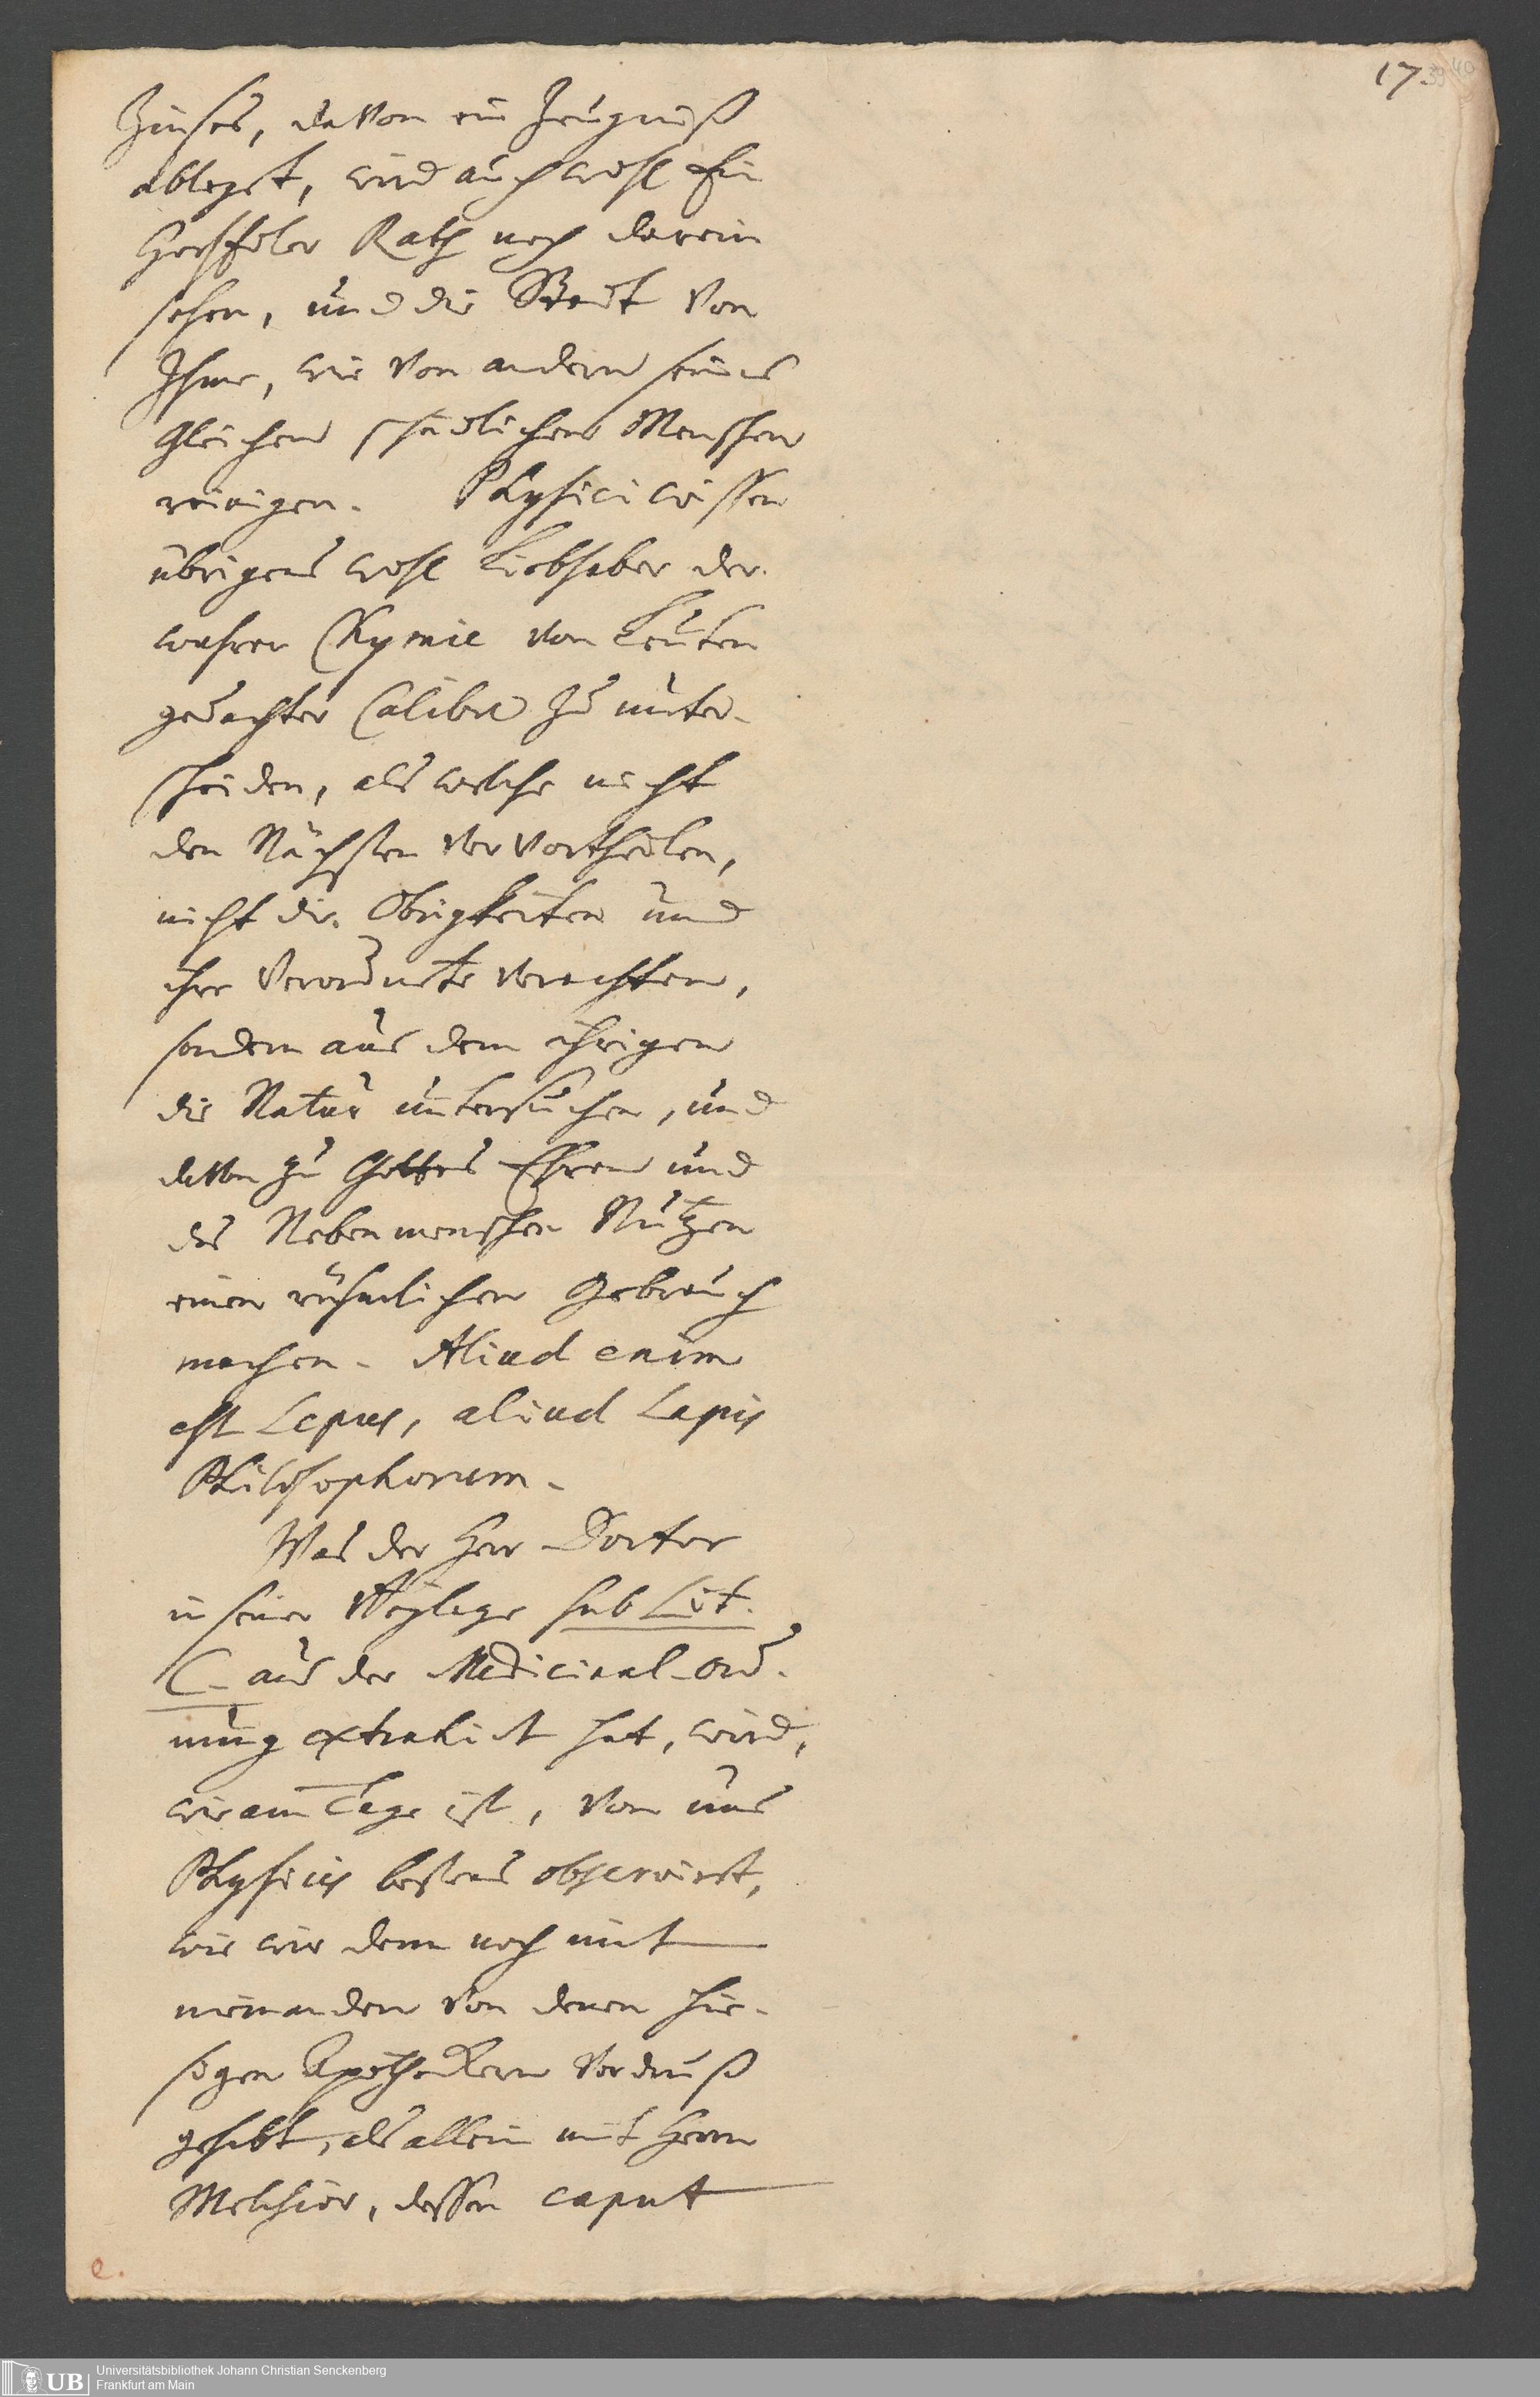 17.
Hauses, davon ein Zeugniß
ableget, wird auch wohl Ein
HochEdler Rath noch darein
sehen, und die Stadt von
Ihme, wie von andern seines
gleichen schädlichen Menschen
reinigen. Physici wissen
übrigens wohl Liebhaber der
wahren Chymie von Leuten
gedachter Calibre zu unter-
scheiden, als welche nicht
den Nächsten vervortheilen,
nicht die Obrigkeiten und
ihre Verordnete verachten,
sondern aus dem ihrigen
die Natur untersuchen, und
davon zu Gottes Ehren und
des Nebenmenschen Nutzen
einen rühmlichen Gebrauch
machen. Aliud enim
est Lepus, aliud Lapis
Philosophorum.
Was der Herr Doctor
in seiner Beylage sub Lit.
C. aus der Medicinal-Ord-
nung extrahirt hat, wird,
wie am Tage ist, von uns
Physicis bestens observirt,
wie wir denn noch mit
niemanden von denen hie-
sigen Apotheckern Verdruß
gehabt, als allein mit Herrn
Melchior, dessen caput
e.
UB
Universitätsbibliothek Johann Christian Senckenberg
Frankfurt am Main